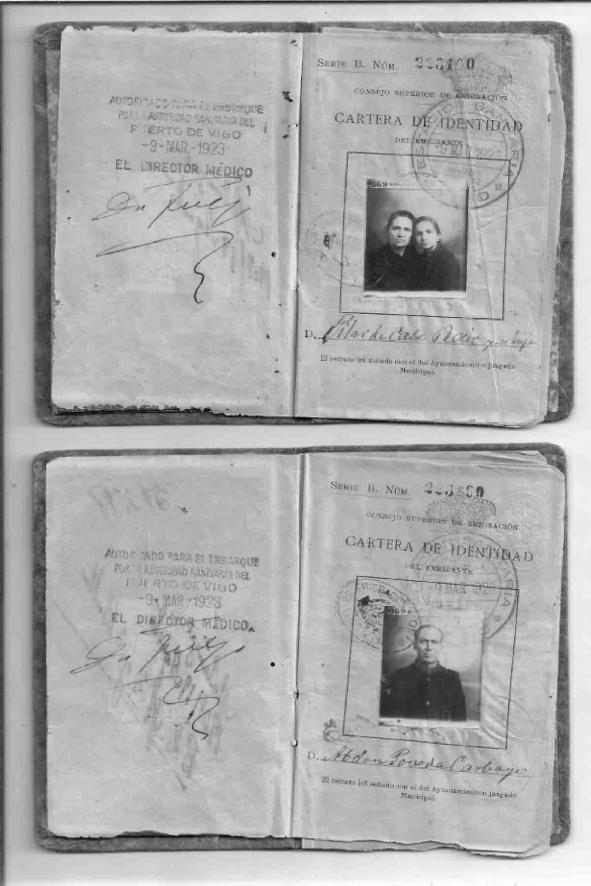 AUTORIZADO PARA EL EMBARQUE
POR LA AUTORIDAD SANITARIA DEL
PUERTO DE VIGO
-9-MAR.-1923
EL DIRECTOR MÉDICO
SERIE B. NÚM.
CONSEJO SUPERIOR DE EMIGRACIÓN
CARTERA DE IDENTIDAD
DEL EMIGRANTE
369
D. Pilar de Cabo y su hija
El retrato irá sellado con el del Ayuntamiento o Juzgado
Municipal.
AUTORIZADO PARA EL EMBARQUE
POR LA AUTORIDAD SANITARIA DEL
PUERTO DE VIGO
-9-MAR-1923
EL DIRECTOR MÉDICO.
SERIE B. NÚM.
CONSEJO SUPERIOR DE EMIGRACIÓN
CARTERA DE IDENTIDAD
DEL EMIGRANTE
D. Abdon Poveda Carbayo
El retrato irá sellado con el del Ayuntamiento o Juzgado
Municipal.